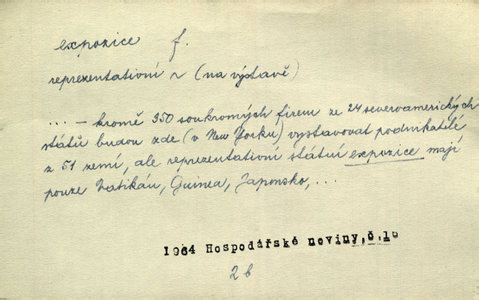 expozice f.
reprezentationí ~ (na výstavě)
... - kromě 350 soukromých firem ze 24 severoamerických
států budou zde (v New Yorku) vystavovat podnikatelé
z 51 zemí, ale reprezentationí státní expozice mají
pouze Vatikán, Guinea, Japonsko, ...
1964 Hospodářské noviny, č.16
2b